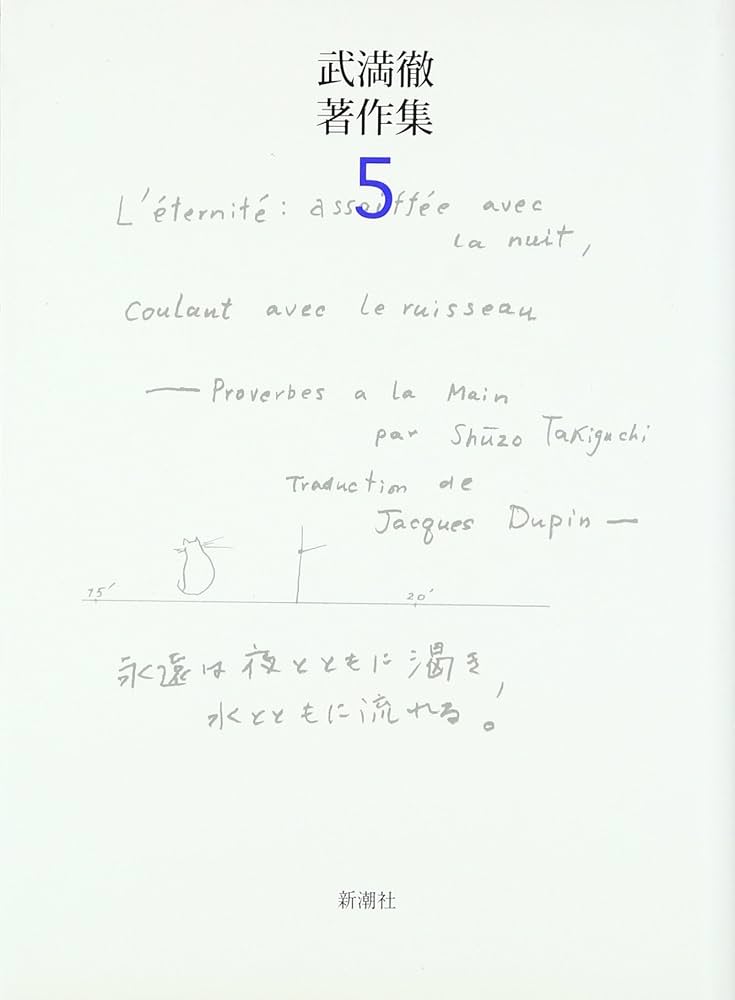 武満徹
著作集
5
L'éternité: assoiffée avec
la nuit,
coulant avec le ruisseau
— Proverbes a la Main
par Shūzo Takiguchi
Traduction de
Jacques Dupin —
15' 20'
永遠は夜とともに渇き,
水とともに流れる。
新潮社